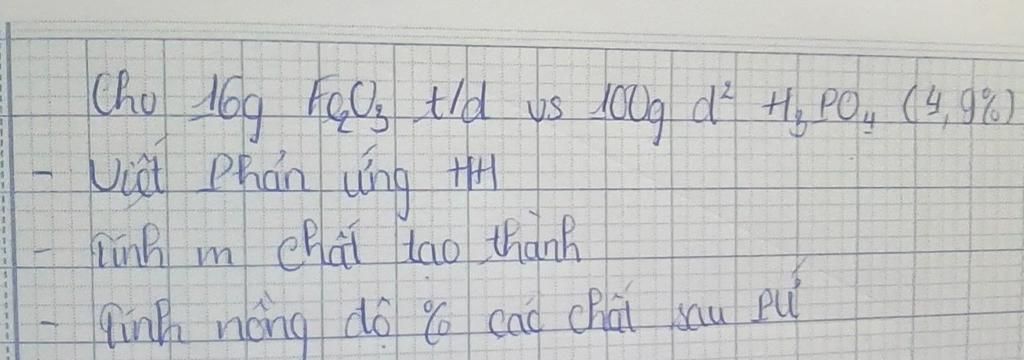 Cho 16g Fe2O3 t/d vs 100g d² H3PO4 (4,9%)
- Viết Phản ứng HH
- Tính m chất tạo thành
- Tính nồng độ % các chất sau PƯ